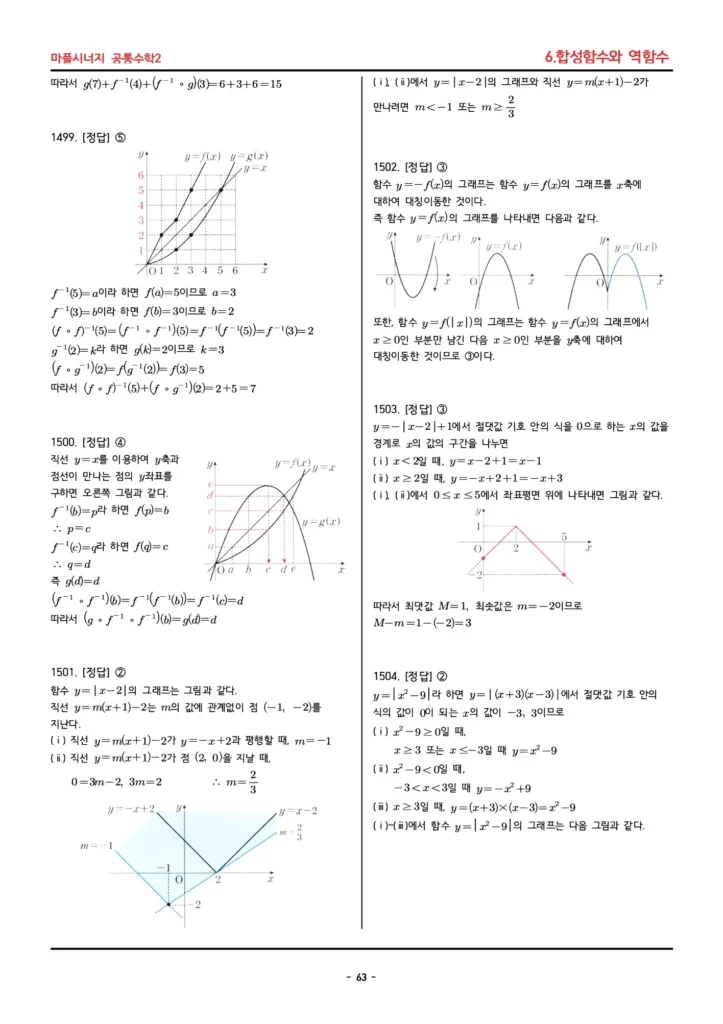 마플시너지 공통수학2
6.합성함수와 역함수
따라서 g(7)+f⁻¹(4)+(f⁻¹∘g)(3)=6+3+6=15
1499. [정답] ⑤
y
y=f(x) y=g(x)
y=x
6
5
4
3
2
1
O 1 2 3 4 5 6 x
f⁻¹(5)=a이라 하면 f(a)=5이므로 a=3
f⁻¹(3)=b이라 하면 f(b)=3이므로 b=2
(f∘f)⁻¹(5)=(f⁻¹∘f⁻¹)(5)=f⁻¹(f⁻¹(5))=f⁻¹(3)=2
g⁻¹(2)=k라 하면 g(k)=2이므로 k=3
(f∘g⁻¹)(2)=f(g⁻¹(2))=f(3)=5
따라서 (f∘f)⁻¹(5)+(f∘g⁻¹)(2)=2+5=7
1500. [정답] ④
직선 y=x를 이용하여 y축과
점선이 만나는 점의 y좌표를
구하면 오른쪽 그림과 같다.
f⁻¹(b)=p라 하면 f(p)=b
∴ p=c
f⁻¹(c)=q라 하면 f(q)=c
∴ q=d
즉 g(d)=d
y
y=f(x)
y=x
e
d
c
b
a
y=g(x)
O a b c d e x
(f⁻¹∘f⁻¹)(b)=f⁻¹(f⁻¹(b))=f⁻¹(c)=d
따라서 (g∘f⁻¹∘f⁻¹)(b)=g(d)=d
1501. [정답] ②
함수 y=|x-2|의 그래프는 그림과 같다.
직선 y=m(x+1)-2는 m의 값에 관계없이 점 (-1, -2)를
지난다.
(ⅰ) 직선 y=m(x+1)-2가 y=-x+2과 평행할 때, m=-1
(ⅱ) 직선 y=m(x+1)-2가 점 (2, 0)을 지날 때,
0=3m-2, 3m=2 ∴ m=2/3
y=-x+2 y y=x-2
m=-1
m=2/3
-1
O 2 x
-2
(ⅰ), (ⅱ)에서 y=|x-2|의 그래프와 직선 y=m(x+1)-2가
만나려면 m<-1 또는 m≥2/3
1502. [정답] ③
함수 y=-f(x)의 그래프는 함수 y=f(x)의 그래프를 x축에
대하여 대칭이동한 것이다.
즉 함수 y=f(x)의 그래프를 나타내면 다음과 같다.
y y=-f(x) O x
y y=f(x) O x
y y=f(|x|) O x
또한, 함수 y=f(|x|)의 그래프는 함수 y=f(x)의 그래프에서
x≥0인 부분만 남긴 다음 x≥0인 부분을 y축에 대하여
대칭이동한 것이므로 ③이다.
1503. [정답] ③
y=-|x-2|+1에서 절댓값 기호 안의 식을 0으로 하는 x의 값을
경계로 x의 값의 구간을 나누면
(ⅰ) x<2일 때, y=x-2+1=x-1
(ⅱ) x≥2일 때, y=-x+2+1=-x+3
(ⅰ), (ⅱ)에서 0≤x≤5에서 좌표평면 위에 나타내면 그림과 같다.
y
1
5
O 2 x
-2
따라서 최댓값 M=1, 최솟값은 m=-2이므로
M-m=1-(-2)=3
1504. [정답] ②
y=|x²-9|라 하면 y=|(x+3)(x-3)|에서 절댓값 기호 안의
식의 값이 0이 되는 x의 값이 -3, 3이므로
(ⅰ) x²-9≥0일 때,
x≥3 또는 x≤-3일 때 y=x²-9
(ⅱ) x²-9<0일 때,
-3<x<3일 때 y=-x²+9
(ⅲ) x≥3일 때, y=(x+3)×(x-3)=x²-9
(ⅰ)~(ⅲ)에서 함수 y=|x²-9|의 그래프는 다음 그림과 같다.
- 63 -